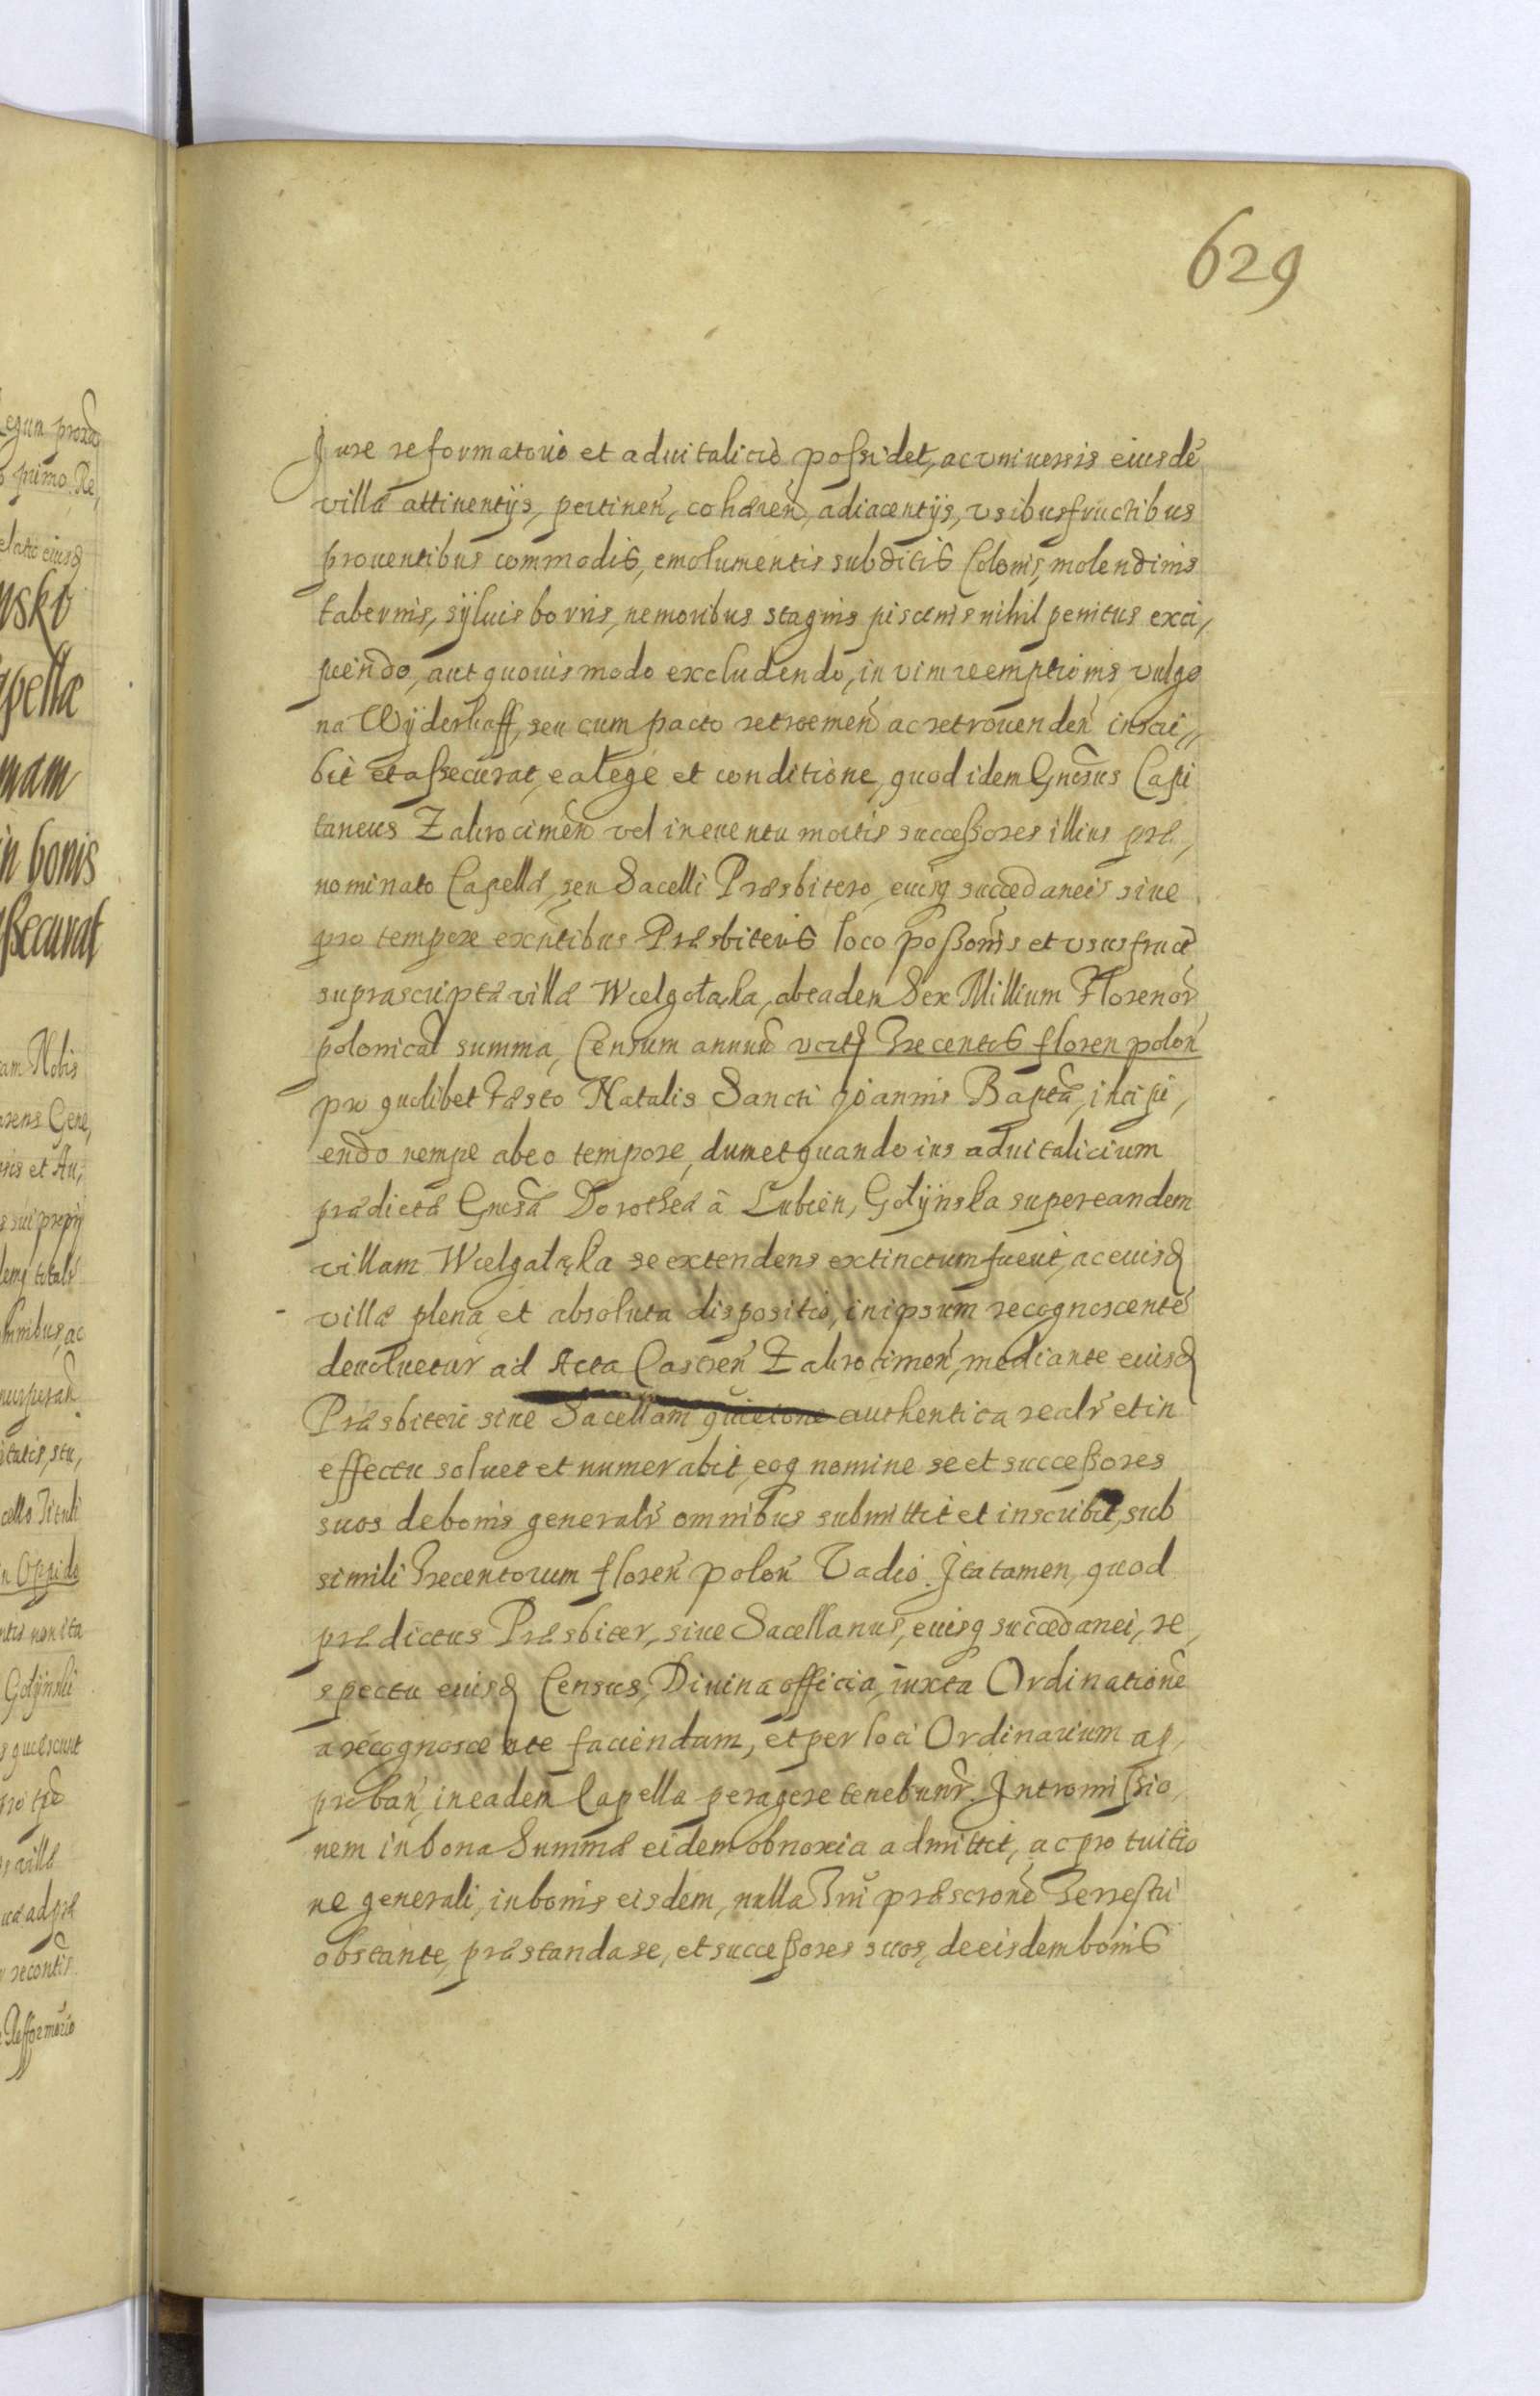 629
Jure reformatorio et aduitalicio possidet, ac vniuersis eiusdē
villæ attinentijs, pertinen̄, cohæren̄, adiacentijs, vsibusfructibus
prouentibus commodis, emolumentis subditis Colonis, molendinis
tabernis, syluis borris, nemoribus stagnis piscinis nihil penitus exci,
piendo, aut quouismodo excludendo, in vim reemptionis vulgo
na Wÿderkaff, seu cum pacto retroemen̄ ac retrouenden̄ inscri,,
bit et assecurat, ea lege et conditione, quod idem Gn̄osus Capi
taneus Zakrocimen̄ vel in euentu mortis successores illius præ,
nominato Capellæ, seu Sacelli Præsbitero, eiusq succedaneis siue
pro tempore exn̄tibus Præsbiteris loco possōnis et vsusfruct̄
suprascriptæ villæ Wielgołąka, ab eadem Sex Millium Florenor̄
polonical summa, Censum annuū vatq Trecentos floren polon̄
pro quolibet Fæsto Natalis Sancti Joannis Baptæ, incipi,
endo nempe ab eo tempore, dum et quando ius aduitalicium
prædictæ Gn̄osæ Dorotheæ à Lubien, Gołÿnska super eandem
villam Wielgałąka se extendens extinctum fuerit, ac eiusd
villæ plena et absoluta dispositio, in ipsum recognoscentē
deuoluetur ad Acta Castren̄ Zakrocimen̄, mediante eiusd
Præsbiteri siue Sacellani quietone authentica realr̄ et in
effectu soluet et numerabit, eoq nomine se et successores
suos de bonis generalr̄ omnibus submittit et inscribit, sub
simili Trecentorum floren̄ polon̄ Vadio. Ita tamen, quod
prædictus Præsbiter, siue Sacellanus, eiusq succedanei, re,
spectu eiusd Census, Diuina officia, iuxta Ordinationē
a recognoscente faciendam, et per loci Ordinarium ap,
proban̄, in eadem Capella peragere tenebunr̄. Intromissio,
nem in bona Summæ eidem obnoxia admittit, ac pro tuitio
ne generali, in bonis eisdem, nulla Trī præscronē Terrestri
obstante, præstanda se, et successores suos, de eisdem bonis